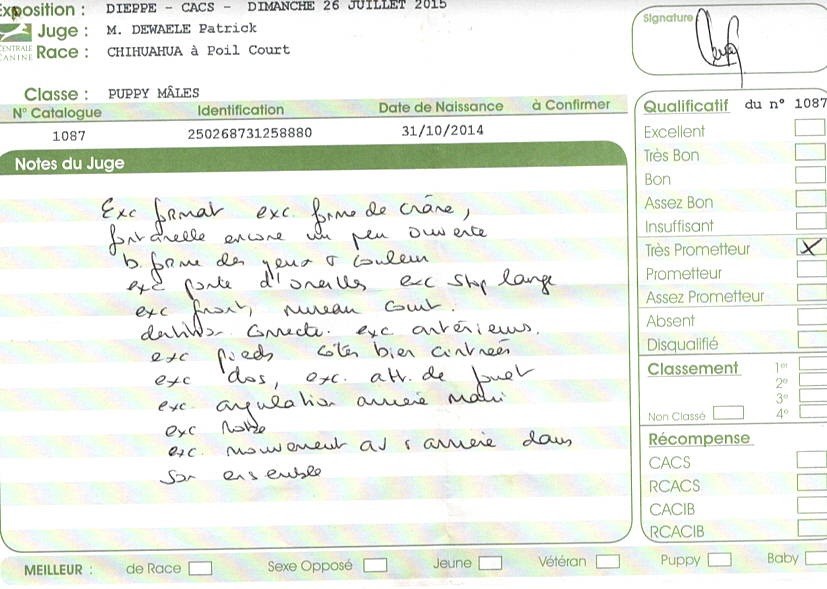 Exposition : DIEPPE - CACS - DIMANCHE 26 JUILLET 2015
Juge : M. DEWAELE Patrick
CENTRALE
CANINE
Race : CHIHUAHUA à Poil Court
Signature
Classe : PUPPY MÂLES
N° Catalogue Identification Date de Naissance à Confirmer
1087 250268731258880 31/10/2014
Notes du Juge
Exc format exc. forme de crâne,
fontanelle encore un peu ouverte
b. forme des yeux & couleur
exc porte d'oreilles exc stop large
exc front, museau court.
dentition correcte. exc antérieurs.
exc pieds côtés bien cintrées
exc dos, exc. att. de fouet
exc. angulation arrière main
exc
exc. mouvement av arrière dans
son ensemble
Qualificatif du n° 1087
Excellent
Très Bon
Bon
Assez Bon
Insuffisant
Très Prometteur X
Prometteur
Assez Prometteur
Absent
Disqualifié
Classement 1er
2e
3e
Non Classé 4e
Récompense
CACS
RCACS
CACIB
RCACIB
MEILLEUR : de Race Sexe Opposé Jeune Vétéran Puppy Baby